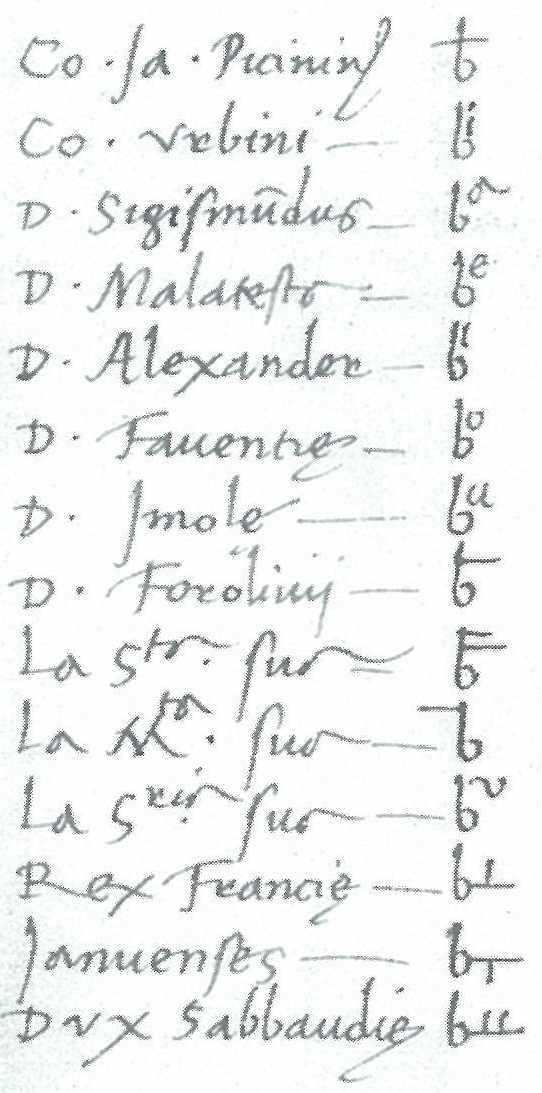 Co · Ja · Picinini
Co · Urbini —
D · Sigismũdus —
D · Malatesta —
D · Alexander —
D · Faventie —
D · Jmole —
D · Forolivij —
La Sta · sua —
La Mta · sua —
La Sria · sua —
Rex Francie —
Januenses —
Dux Sabbaudie